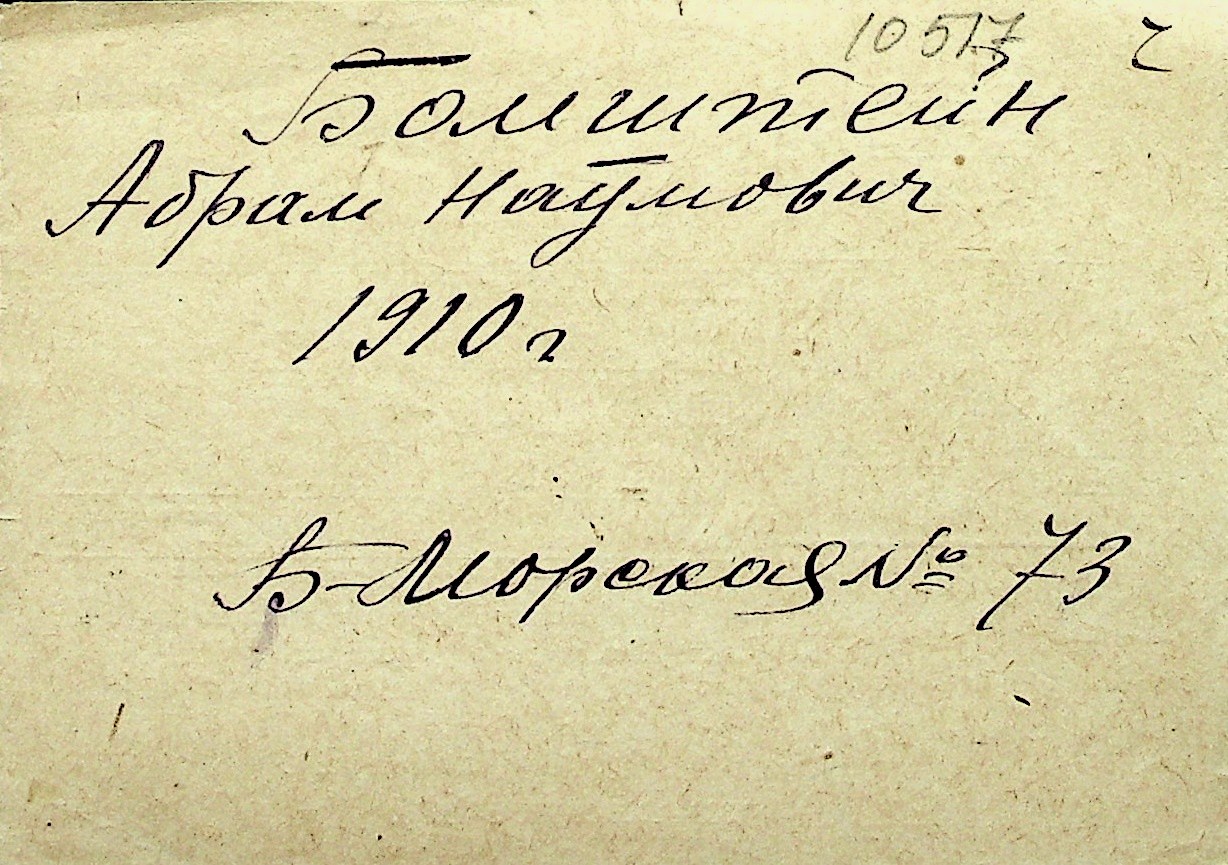 10517
Бомштейн
Абрам Наумович
1910 г
Б-Морская № 73